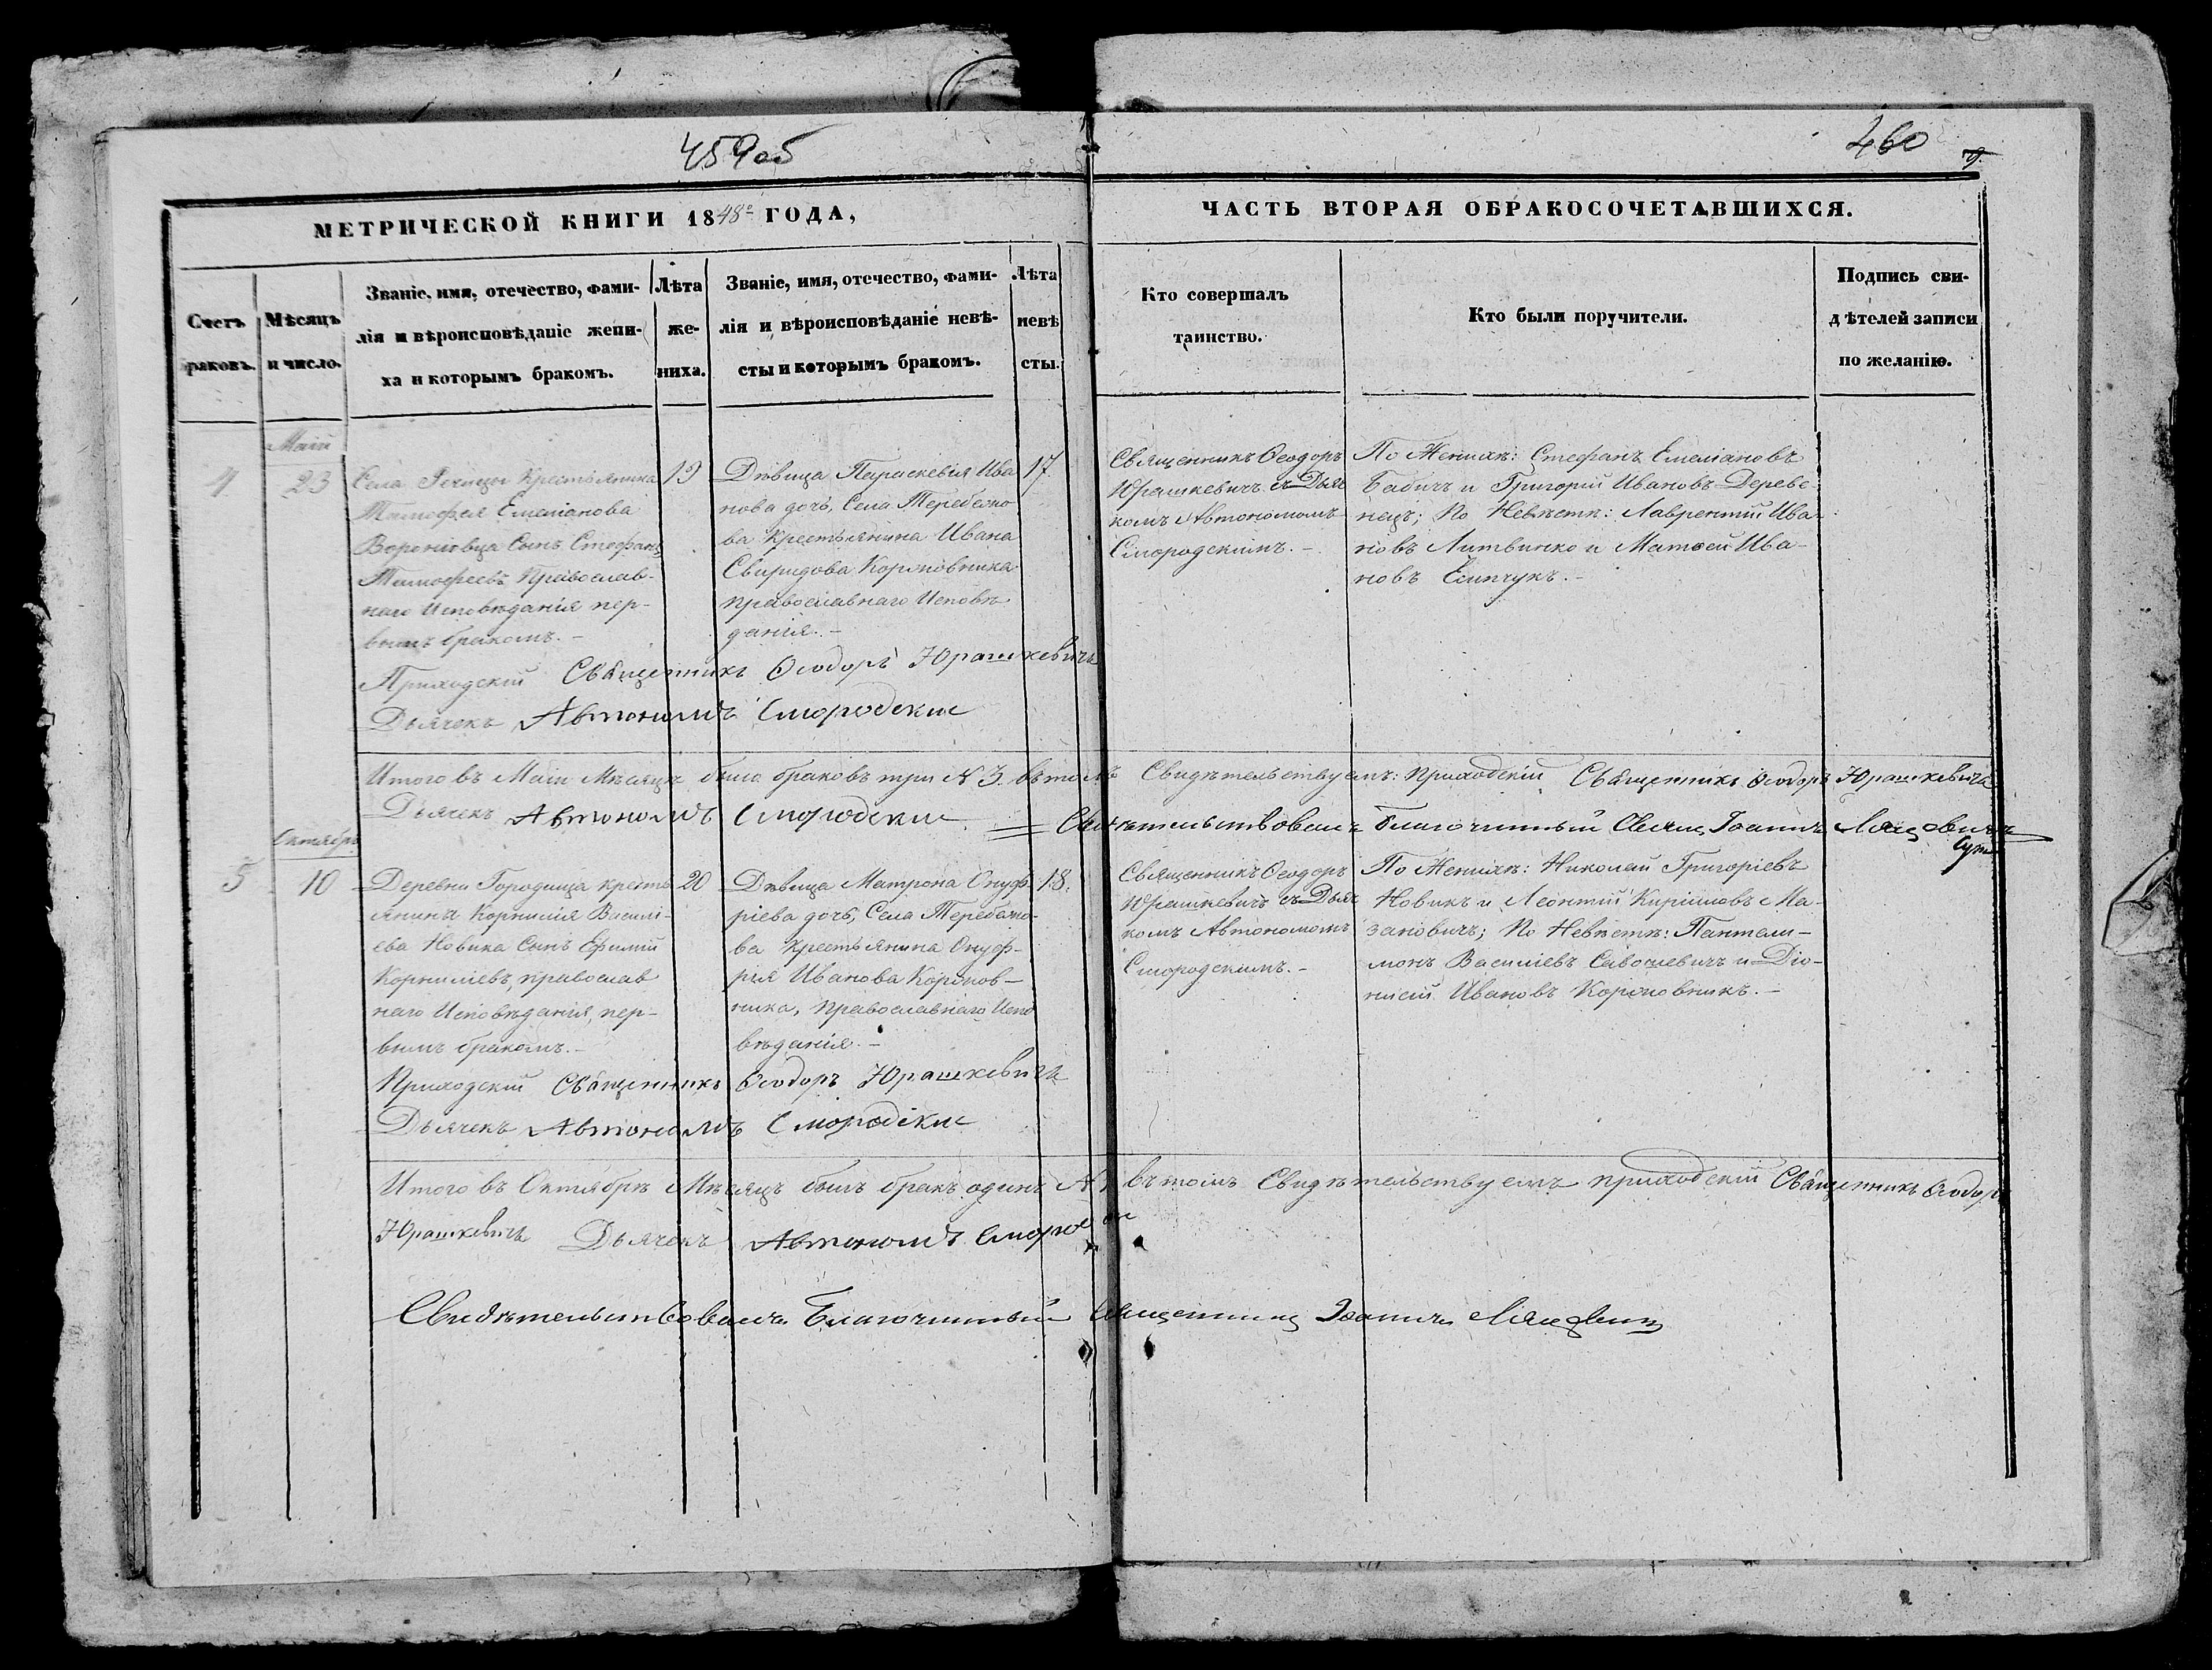 459 об
460
9.
МЕТРИЧЕСКОЙ КНИГИ 1848º ГОДА,
ЧАСТЬ ВТОРАЯ ОБРАКОСОЧЕТАВШИХСЯ.
Счетъ
браковъ.
Мѣсяцъ
и число.
Званіе, имя, отечество, фами-
лія и вѣроисповѣданіе жени-
ха и которымъ бракомъ.
Лѣта
же-
ниха.
Званіе, имя, отечество, фами-
лія и вѣроисповѣданіе невѣ-
сты и которымъ бракомъ.
Лѣта
невѣ
сты.
Кто совершалъ
таинство.
Кто были поручители.
Подпись сви-
дѣтелей записи
по желанію.
Маій
4
23
Села Речицы Крестьянина
Тимофея Емеліанова
Сынъ Стефанъ
Тимофеевъ Православ-
наго Исповѣданія пер-
вымъ бракомъ. –
19
Дѣвица Параскевія Ива
нова дочь, Села Теребежо
ва Крестьянина Ивана
Свиридова Коромовника
православнаго Исповѣ
данія. –
17.
Священникъ Ѳеодоръ
Юрашкевичъ съ Дьяч
комъ Автономомъ
Смородскимъ. –
По Женихѣ: Стефанъ Емеліановъ
Бабичъ и Григорій Ивановъ Дереве
нецъ; По Невѣстѣ: Лаврентій Ива-
новъ Литвинко и Матѳей Ива-
новъ –
Приходскій Священникъ Ѳеодоръ Юрашкевичъ
Дьячекъ Автономъ Смородскій
Итого въ Маіи Мѣсяцѣ было браковъ три N 3. въ томъ Свидѣтельствуемъ: Приходскій Священникъ Ѳеодоръ Юрашкевичъ
Дьячекъ Автономъ Смородскій
Свидѣтельствовалъ Благочинный Свящ. Іоаннъ
Октябрь
5
10
Деревни Городища кресть
янина Корнилія Василі-
ева Новика Сынъ Ефимій
Корниліевъ, православ
наго Исповѣданія, пер-
вымъ бракомъ. –
20
Дѣвица Матрона Онуф-
ріева дочь, Села Теребежо-
ва Крестьянина Онуф-
рія Иванова Коромов-
ника, Православнаго Испо
вѣданія. –
18.
Священникъ Ѳеодоръ
Юрашкевичъ съ Дьяч
комъ Автономомъ
Смородскимъ. –
По Женихѣ: Николай Григоріевъ
Новикъ и Леонтій Кириловъ Ма-
зановичъ; По Невѣстѣ: Пантели-
монъ Василіевъ Савошевичъ и Діо-
нисій Ивановъ Коромовникъ. –
Приходскій Священникъ Ѳеодоръ Юрашкевичъ
Дьячекъ Автономъ Смородскій
Итого въ Октябрѣ Мѣсяцѣ былъ бракъ одинъ N 1 въ томъ Свидѣтельствуемъ приходскій Священникъ Ѳеодоръ
Юрашкевичъ Дьячекъ Автономъ
Свидѣтельствовалъ Благочинный Священникъ Іоаннъ